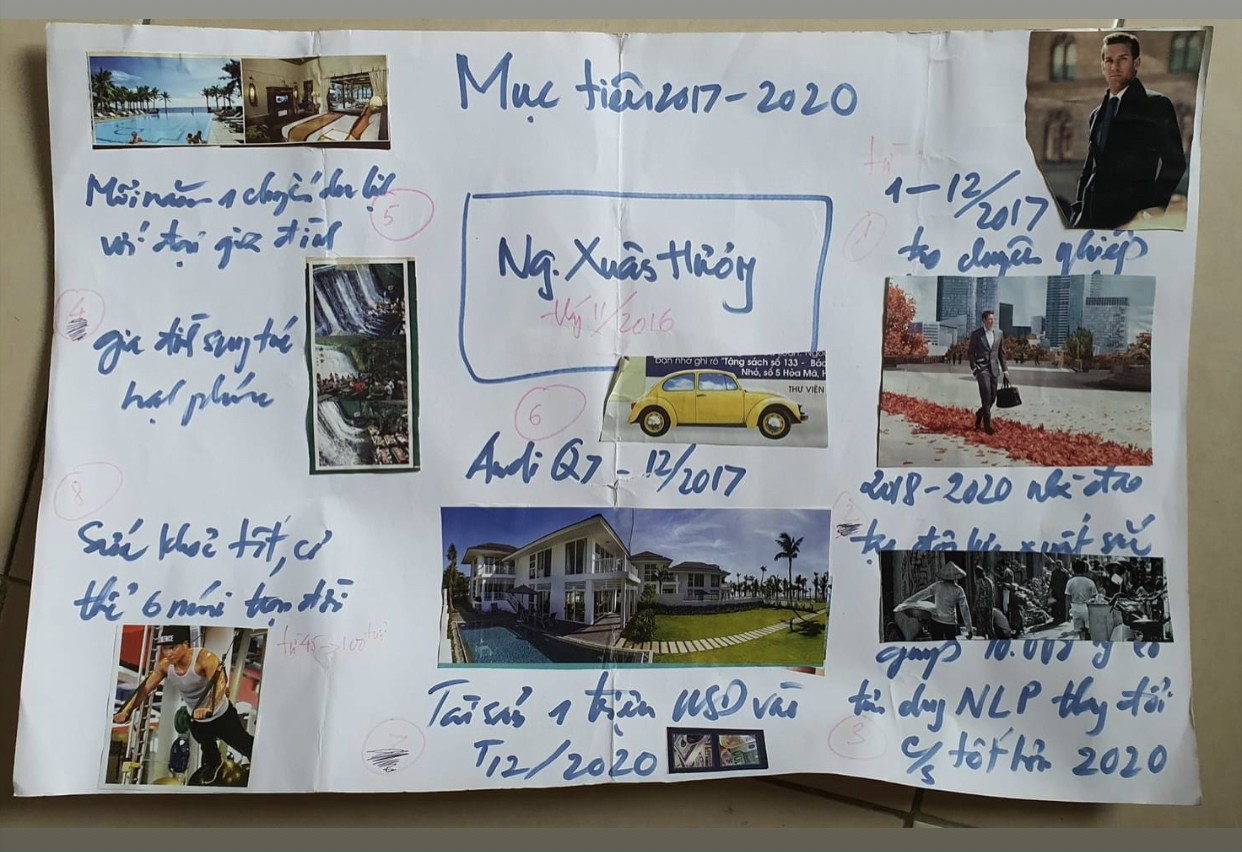 Mục tiêu 2017-2020
Mỗi năm 1 chuyến du lịch
với đại gia đình
5
4
gia đình sung túc
hạnh phúc
8
Sức khoẻ tốt, cơ
thể 6 múi trọn đời
từ 45 → 100 tuổi
Ng. Xuân Hưởng
Ký 11/2016
bạn nhớ ghi rõ "Tặng sách số 133 -
Nhỏ, số 5 Hòa Mã,
THƯ VIỆN
6
Audi Q7 - 12/2017
Tài sản 1 triệu USD vào
T12/2020
7
từ
1-12/2017
1
tạo chuyên nghiệp
2018-2020 nhà đào
2
tạo
xuất sắc
giúp 10.000
tư duy NLP thay đổi
3
c/s tốt hơn 2020